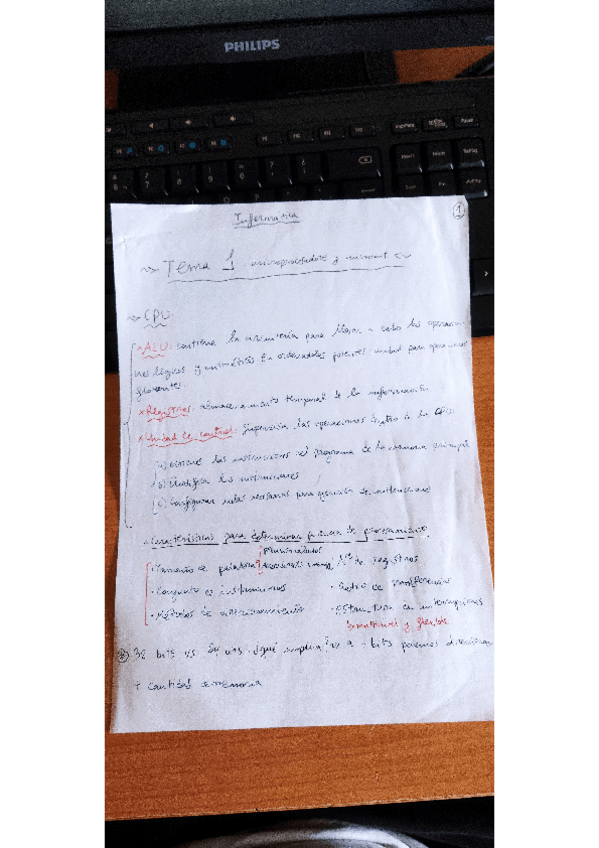 PHILIPS
Informatica
1
~> Tema 1 microprocesadores y
~> CPU:
* ALU: contiene la circuitería para llevar a cabo las operacio-
nes lógicas y aritméticas. En ordenadores potentes unidad para operaciones
flotantes.
* Registros: almacenamiento temporal de la información
* Unidad de control: Supervisa las operaciones dentro de la CPU.
a) obtiene las instrucciones del programa de la memoria principal
b) Identifica las instrucciones
c) Configura rutas necesarias para ejecución de instrucciones
Características para determinar potencia de procesamiento
· Tamaño de palabra
· Nº de registros
· Conjunto de instrucciones
· de transferencias
· Métodos de direccionamiento
· Estructura de interrupciones
y flexible
32 bits vs 64 bits ¿qué implica? a + bits podemos direccionar
+ cantidad de memoria